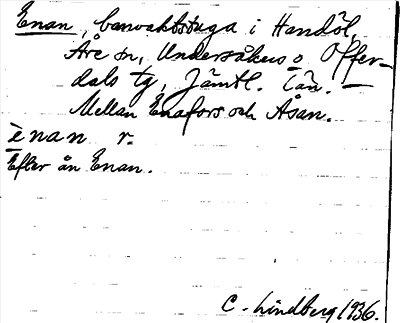 Enan, banvaktstuga i Handöl,
Åre sn, Undersåkers o. Offer-
dals tg, Jämtl. län. —
Mellan Enafors och Åsan.
ènan r.
Efter ån Enan.
C. Lindberg 1936.